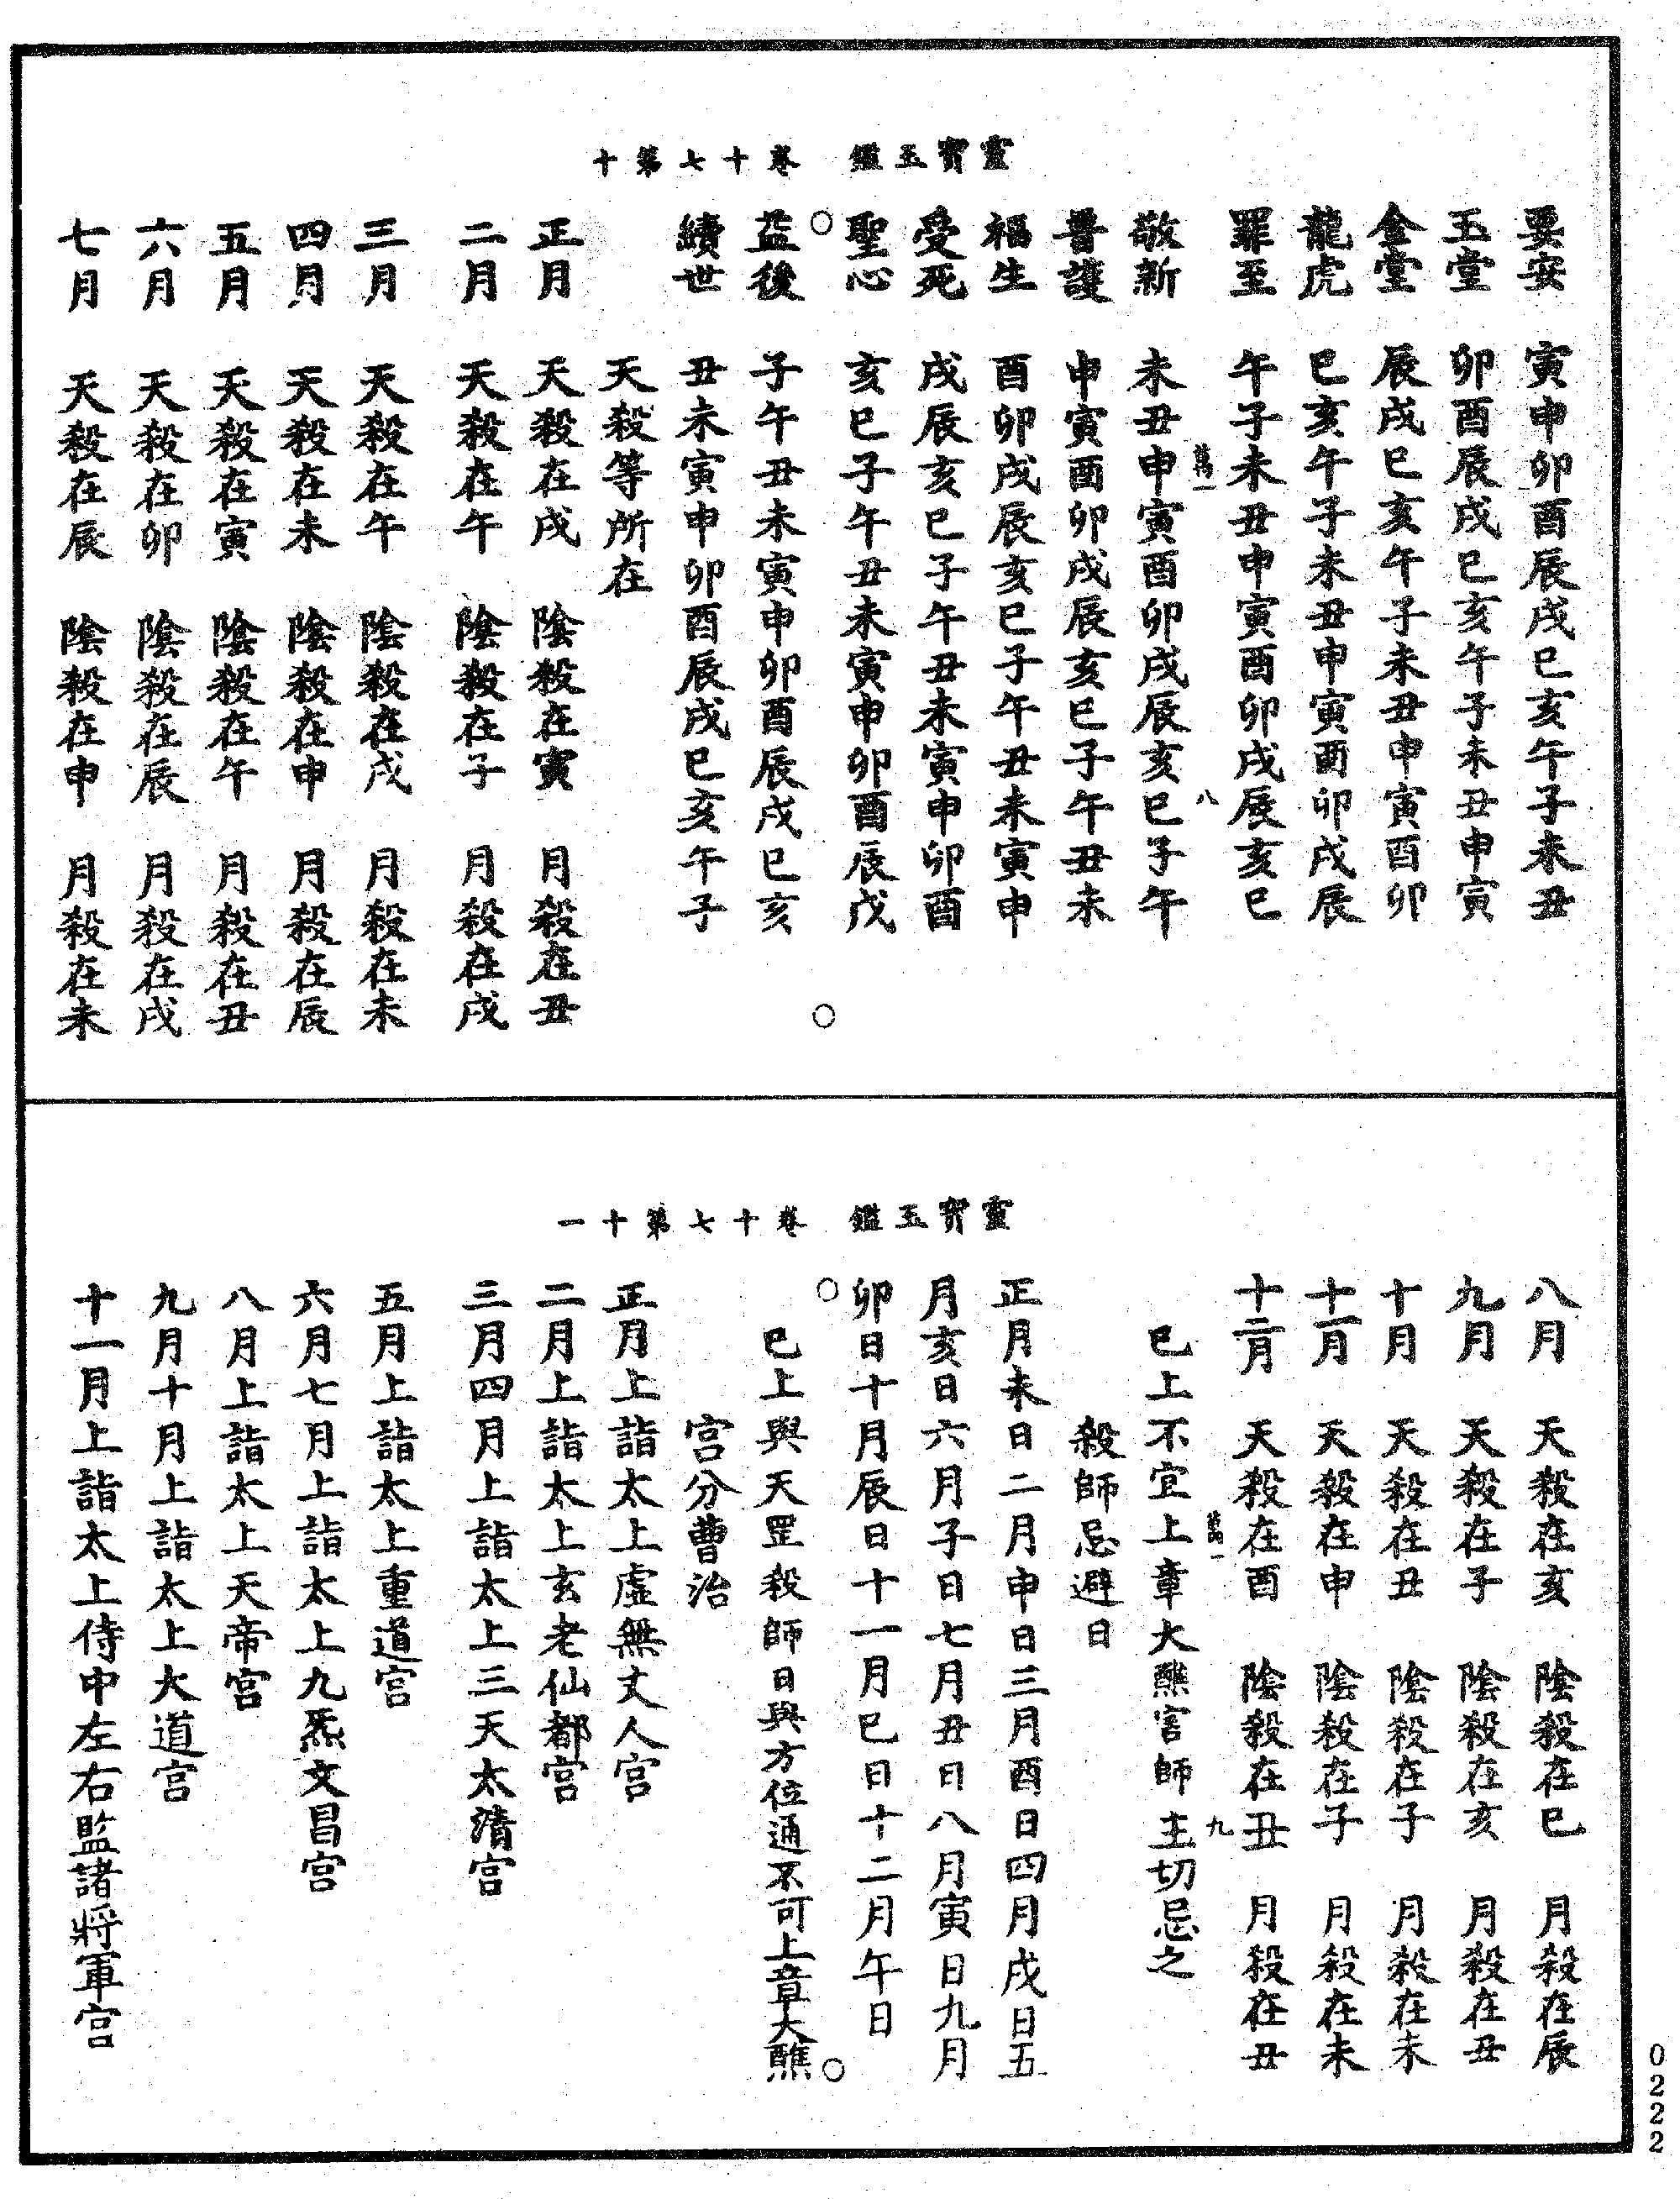 靈寶玉鑑　卷十七第十
要安　寅申卯酉辰戌巳亥午子未丑
玉堂　卯酉辰戌巳亥午子未丑申寅
金堂　辰戌巳亥午子未丑申寅酉卯
龍虎　巳亥午子未丑申寅酉卯戌辰
罪至　午子未丑申寅酉卯戌辰亥巳
八
敬新　未丑申寅酉卯戌辰亥巳子午
普護　申寅酉卯戌辰亥巳子午丑未
福生　酉卯戌辰亥巳子午丑未寅申
受死　戌辰亥巳子午丑未寅申卯酉
聖心　亥巳子午丑未寅申卯酉辰戌
益後　子午丑未寅申卯酉辰戌巳亥
續世　丑未寅申卯酉辰戌巳亥午子
天殺等所在
正月　天殺在戌　陰殺在寅　月殺在丑
二月　天殺在午　陰殺在子　月殺在戌
三月　天殺在午　陰殺在戌　月殺在未
四月　天殺在未　陰殺在申　月殺在辰
五月　天殺在寅　陰殺在午　月殺在丑
六月　天殺在卯　陰殺在辰　月殺在戌
七月　天殺在辰　陰殺在申　月殺在未
靈寶玉鑑　卷十七第十一
八月　天殺在亥　陰殺在巳　月殺在辰
九月　天殺在子　陰殺在亥　月殺在丑
十月　天殺在丑　陰殺在子　月殺在未
十一月　天殺在申　陰殺在子　月殺在未
十二月　天殺在酉　陰殺在丑　月殺在丑
九
巳上不宜上章大醮害師主切忌之
殺師忌避日
正月未日二月申日三月酉日四月戌日五
月亥日六月子日七月丑日八月寅日九月
卯日十月辰日十一月巳日十二月午日
巳上與天罡殺師日與方位通不可上章大醮
宮分曹治
正月上詣太上虛無丈人宮
二月上詣太上玄老仙都宮
三月四月上詣太上三天太清宮
五月上詣太上重道宮
六月七月上詣太上九炁文昌宮
八月上詣太上天帝宮
九月十月上詣太上大道宮
十一月上詣太上侍中左右監諸將軍宮
0222